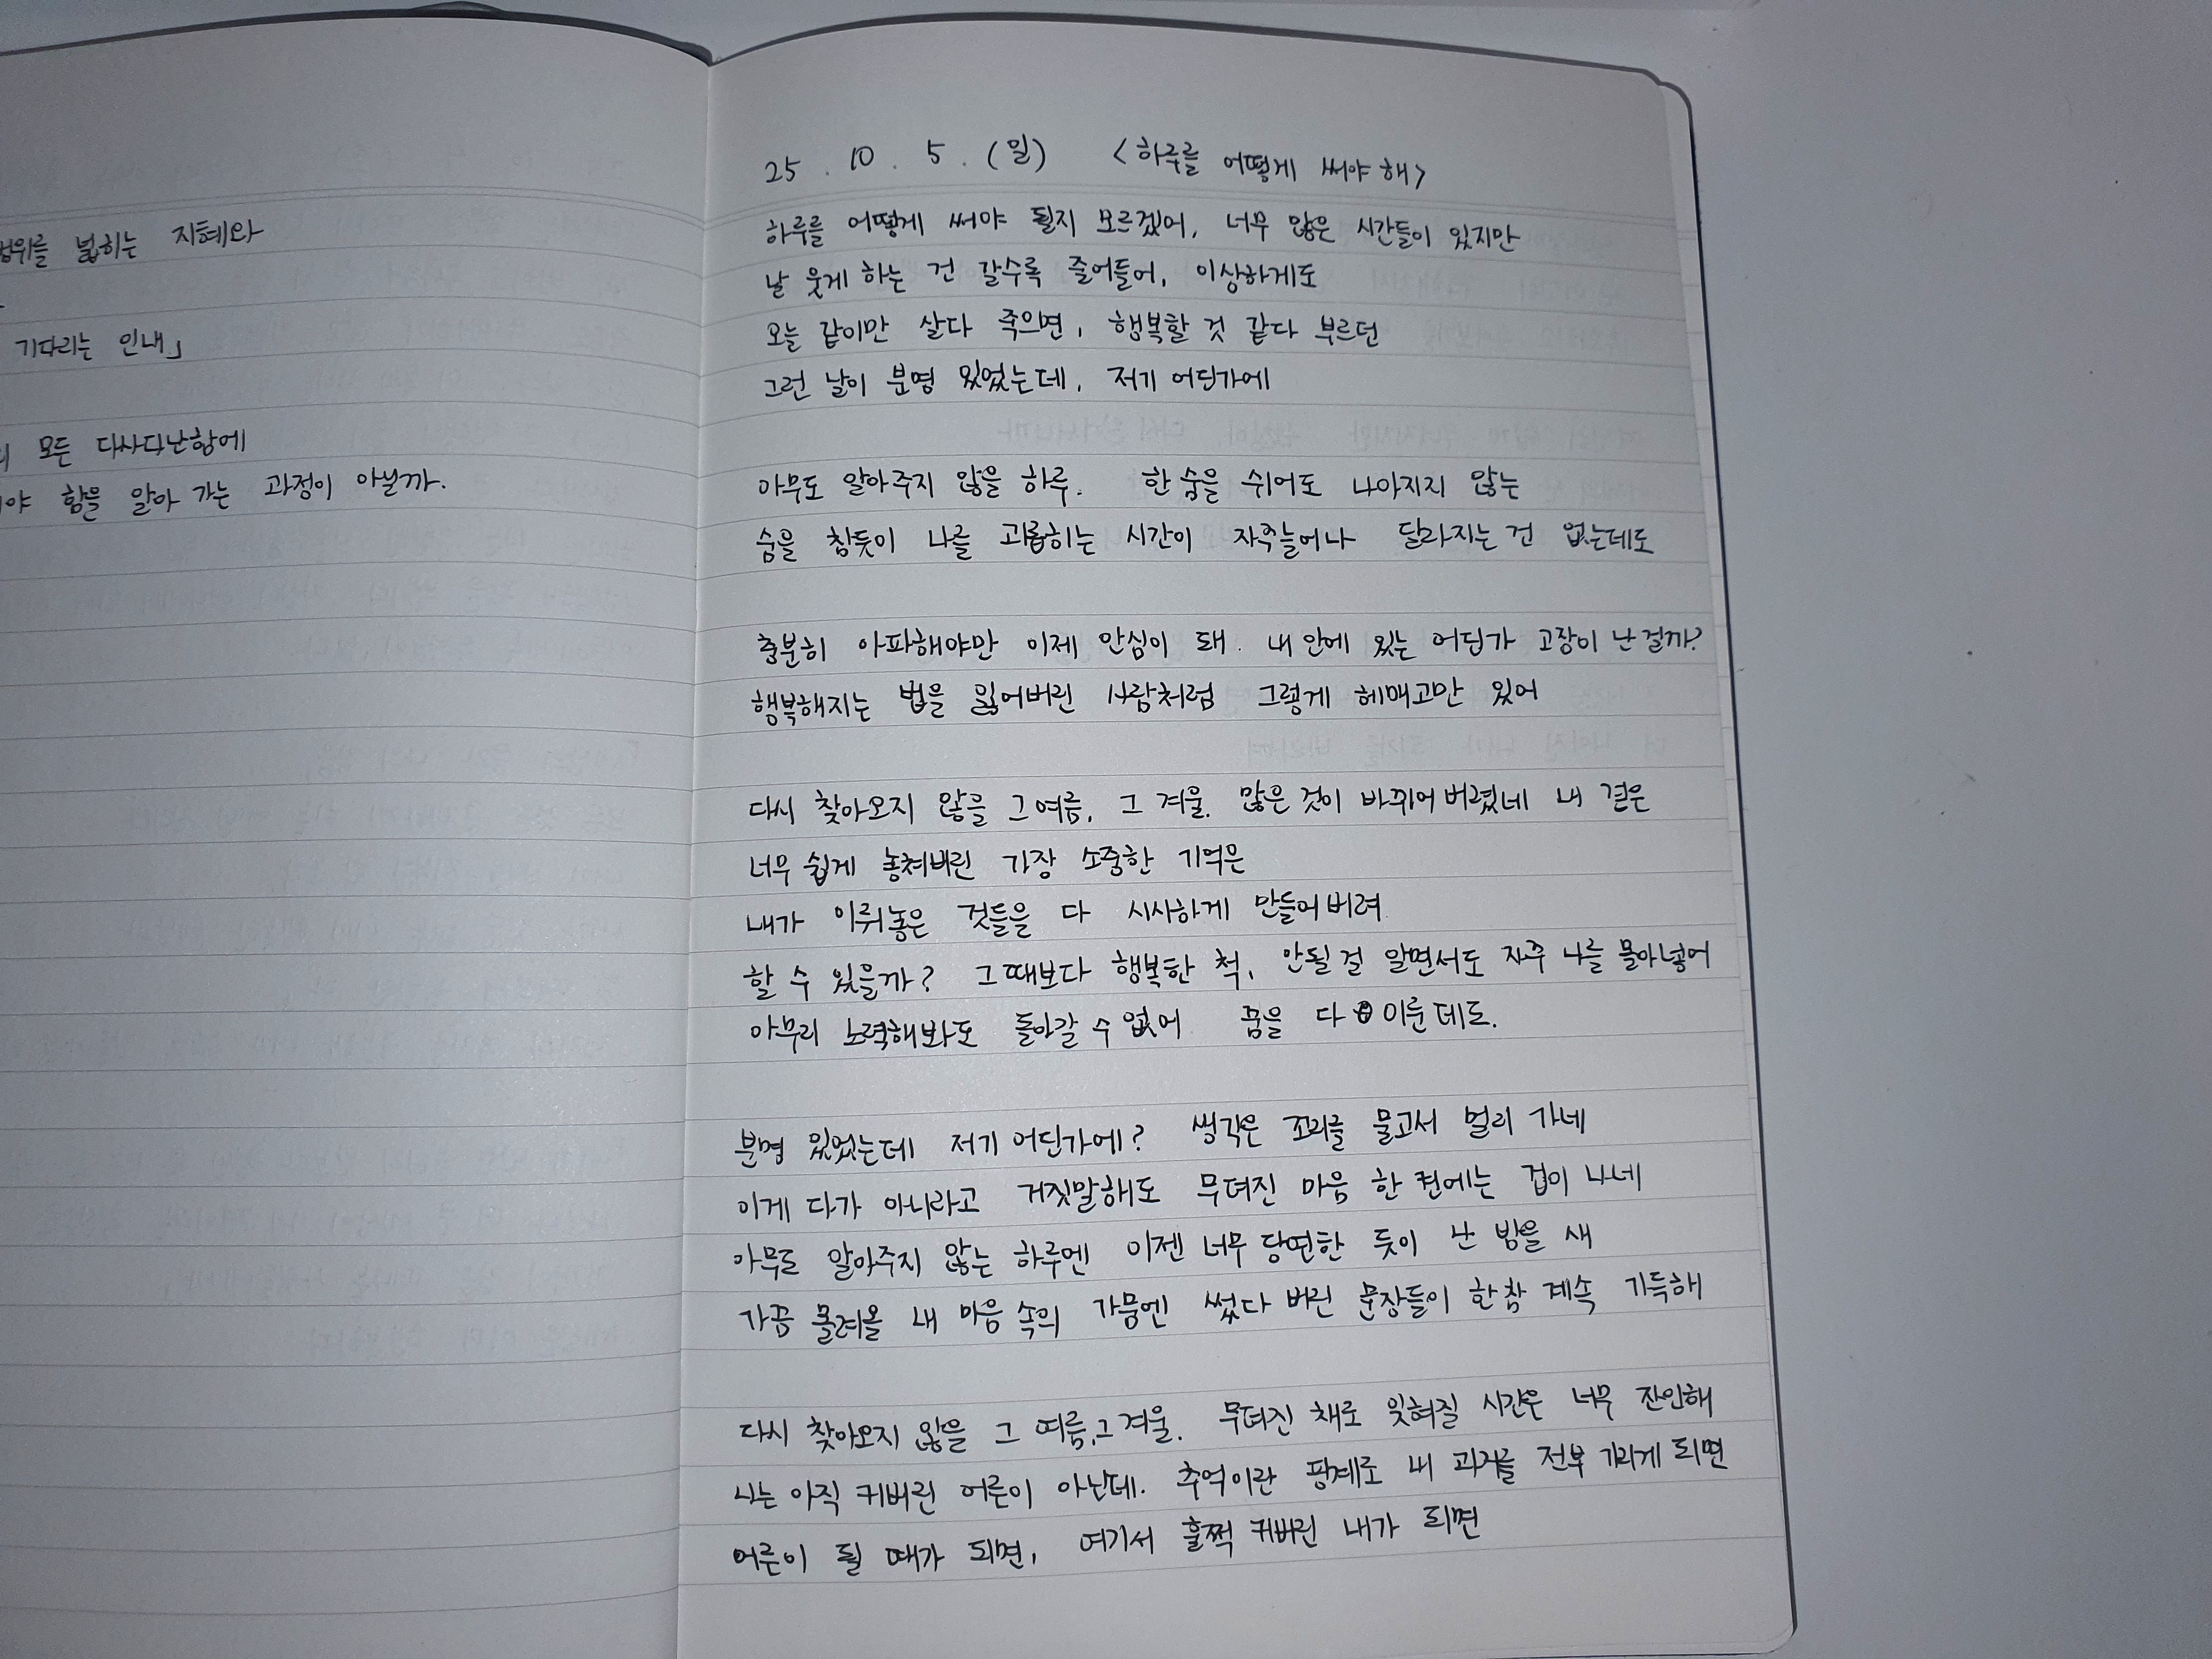 범위를 넓히는 지혜와
기다리는 인내」
모든 다사다난함에
야 함을 알아 가는 과정이 아닐까.
25. 10. 5. (일) <하루를 어떻게 써야 해>
하루를 어떻게 써야 될지 모르겠어, 너무 많은 시간들이 있지만
날 웃게 하는 건 갈수록 줄어들어, 이상하게도
오늘 같이만 살다 죽으면, 행복할 것 같다 부르던
그런 날이 분명 있었는데, 저기 어딘가에
아무도 알아주지 않을 하루. 한 숨을 쉬어도 나아지지 않는
숨을 참듯이 나를 괴롭히는 시간이 자주 늘어나 달라지는 건 없는데도
충분히 아파해야만 이제 안심이 돼. 내 안에 있는 어딘가 고장이 난 걸까?
행복해지는 법을 잃어버린 사람처럼 그렇게 헤매고만 있어
다시 찾아오지 않을 그 여름, 그 겨울. 많은 것이 바뀌어 버렸네 내 곁은
너무 쉽게 놓쳐버린 가장 소중한 기억은
내가 이뤄놓은 것들을 다 시시하게 만들어 버려
할 수 있을까? 그때보다 행복한 척, 안될 걸 알면서도 자주 나를 몰아넣어
아무리 노력해봐도 돌아갈 수 없어 꿈을 다 이룬데도.
분명 있었는데 저기 어딘가에? 생각은 꼬리를 물고서 멀리 가네
이게 다가 아니라고 거짓말해도 무뎌진 마음 한 켠에는 겁이 나네
아무도 알아주지 않는 하루엔 이젠 너무 당연한 듯이 난 밤을 새
가끔 몰려올 내 마음 속의 가뭄엔 썼다 버린 문장들이 한참 계속 기득해
다시 찾아오지 않을 그 여름, 그 겨울. 무뎌진 채로 잊혀질 시간은 너무 잔인해
나는 아직 커버린 어른이 아닌데. 추억이란 핑계로 내 과거를 전부 가리게 되면
어른이 될 때가 되면, 여기서 훌쩍 커버린 내가 되면